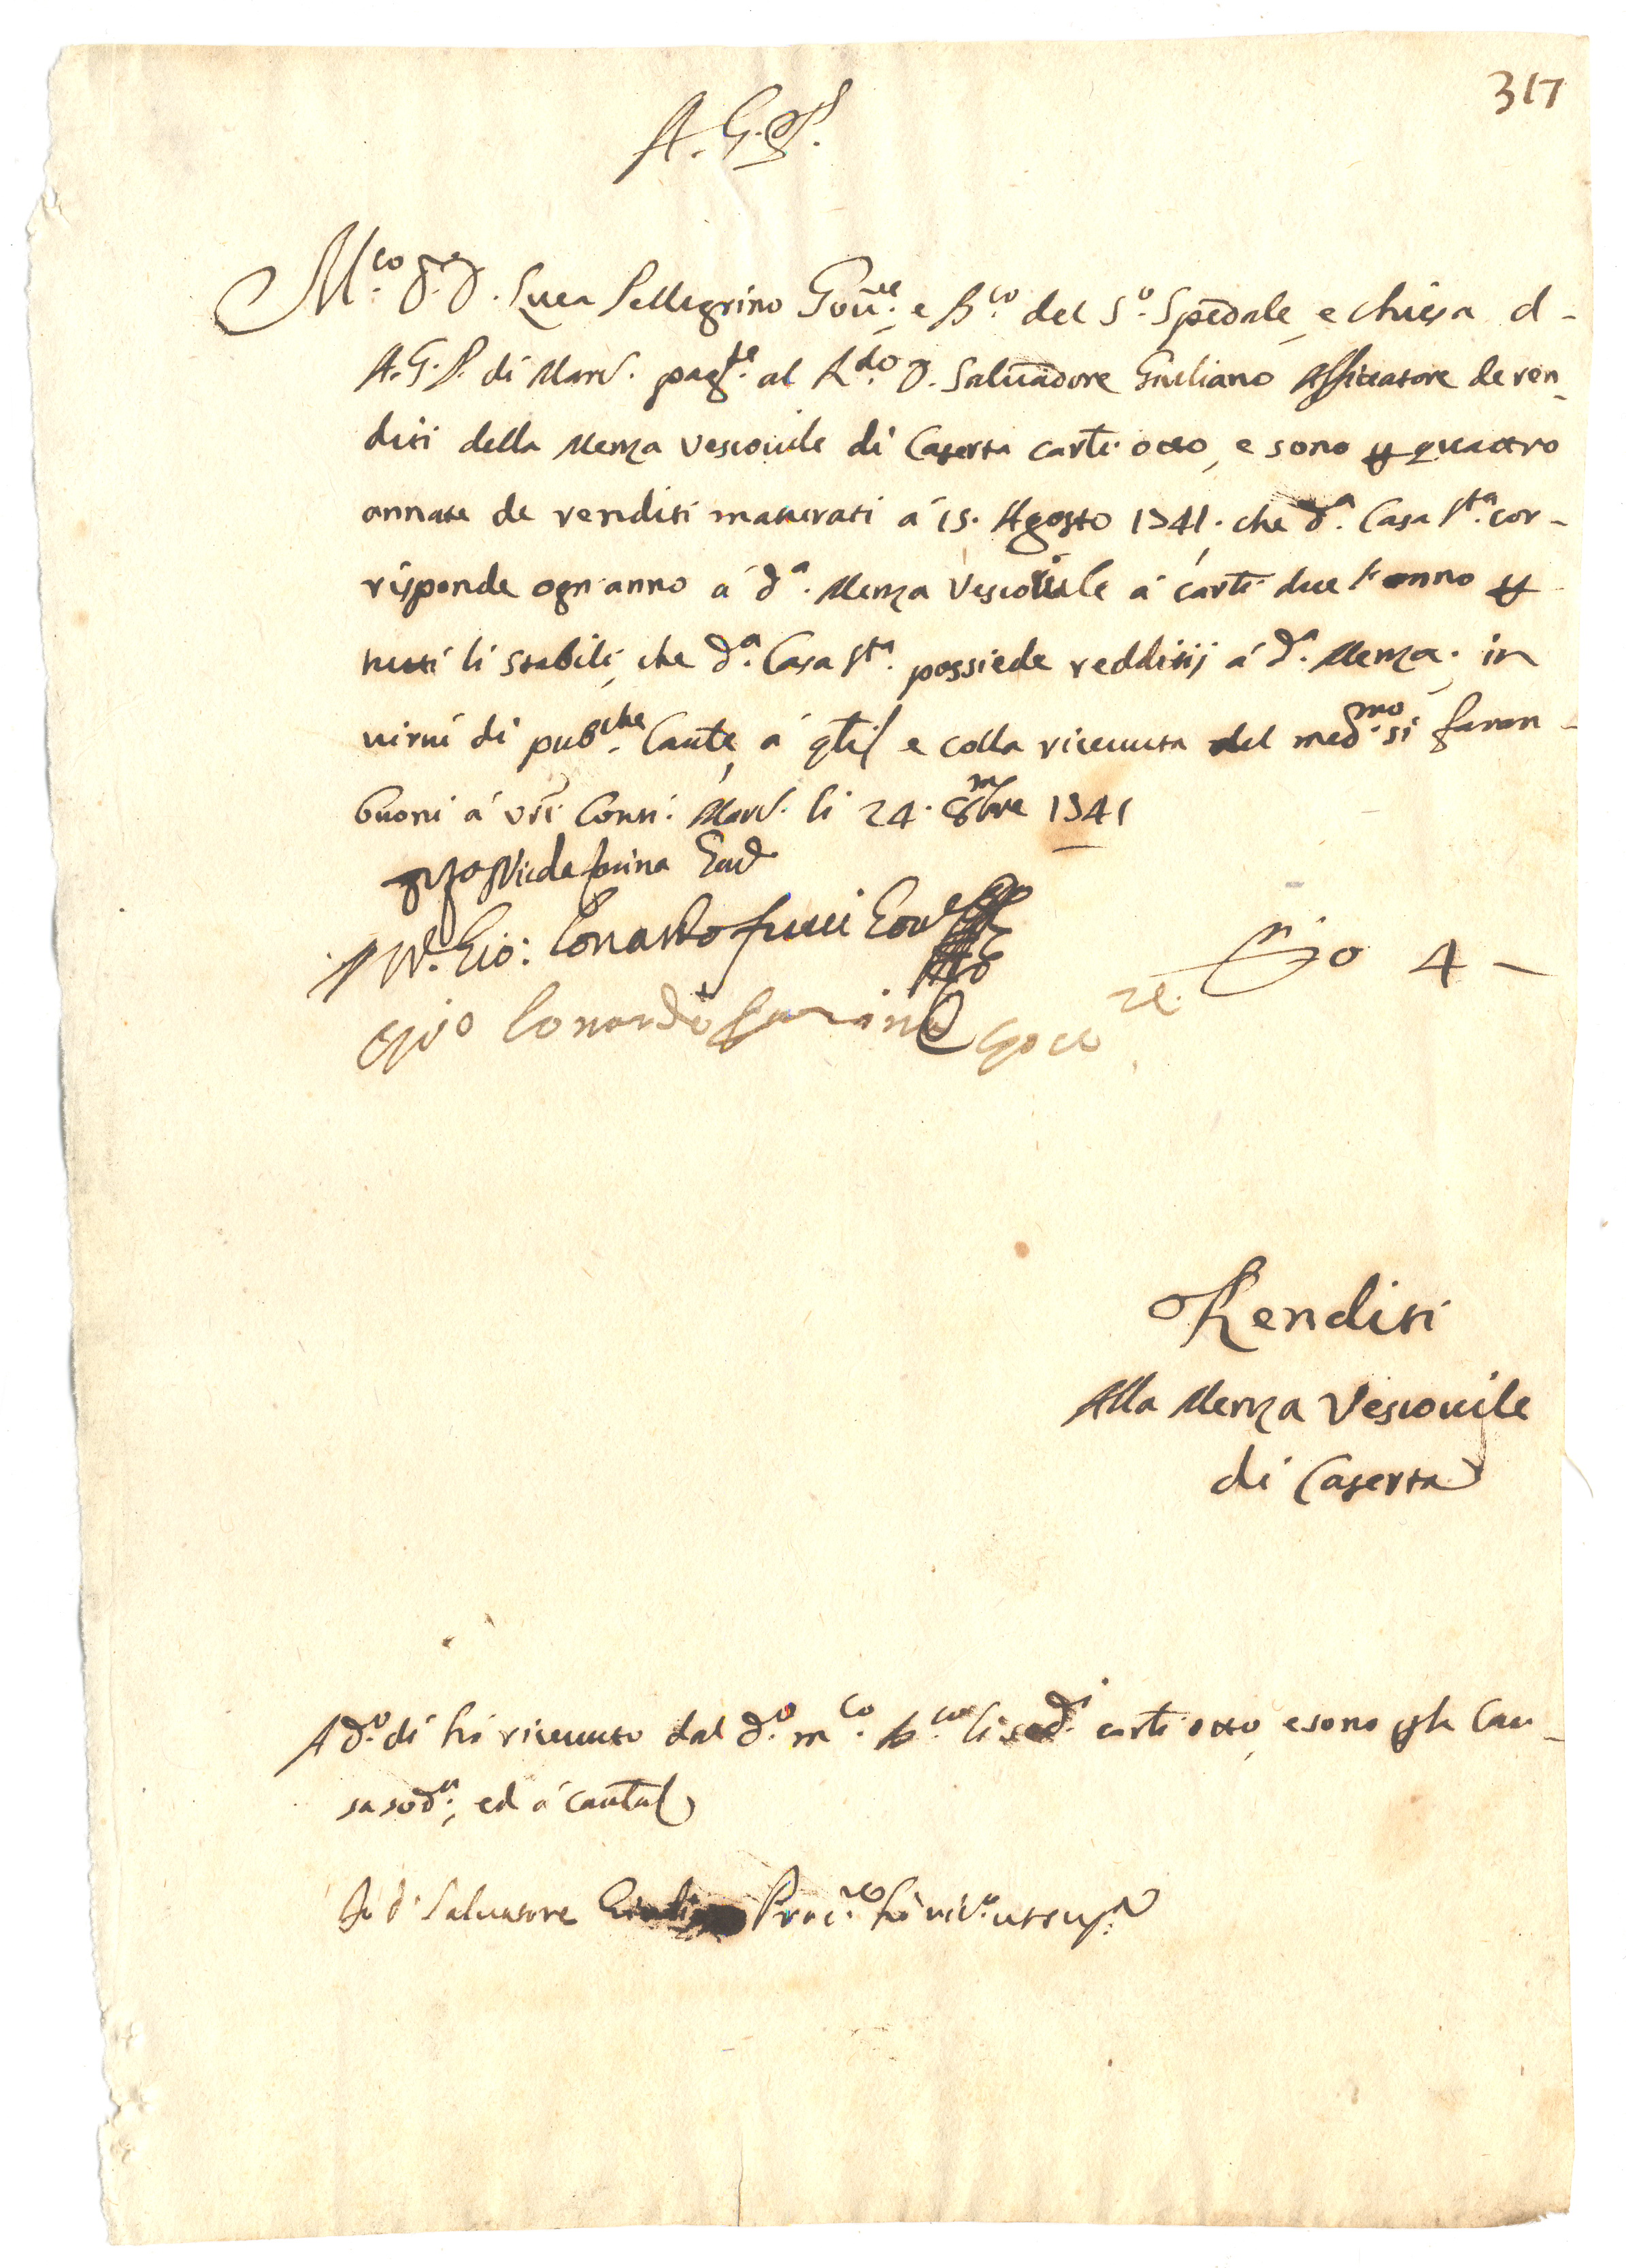 317
A. G. P.
M.co Sr. D. Luca Pellegrino Gov.re e B.co del S.o Spedale, e chiesa d-
A. G. P. di Marc. pag.te al R.do D. Salvadore Giuliano Affittatore de ren-
diti della Menza Vescovile di Caserta carl.i otto, e sono p quattro
annate de renditi maturati á 15. Agosto 1741. che d.a Casa S.ta cor-
risponde ogn'anno á d.a Menza Vescovile á carl.i due l'anno p
tutti li stabili, che d.a Casa S.ta possiede redditij á d.a Menza. in
virtú di pub.che Caute, á
e colla ricevuta del med.mo si faran-
buoni á vri Conti. Marc. li 24. 8mbre 1741
Gio: Lonardo
Lonardo
D.o 4 -
Renditi
Alla Menza Vescovile
di Caserta
A d.o dí hó ricevuto dal d.o m.co B.co li sud.i carl.i otto, e sono p la Cau-
sa sod.a, ed á cautela
Io D. Salvatore Proc.re hó ric.to ut sup.a